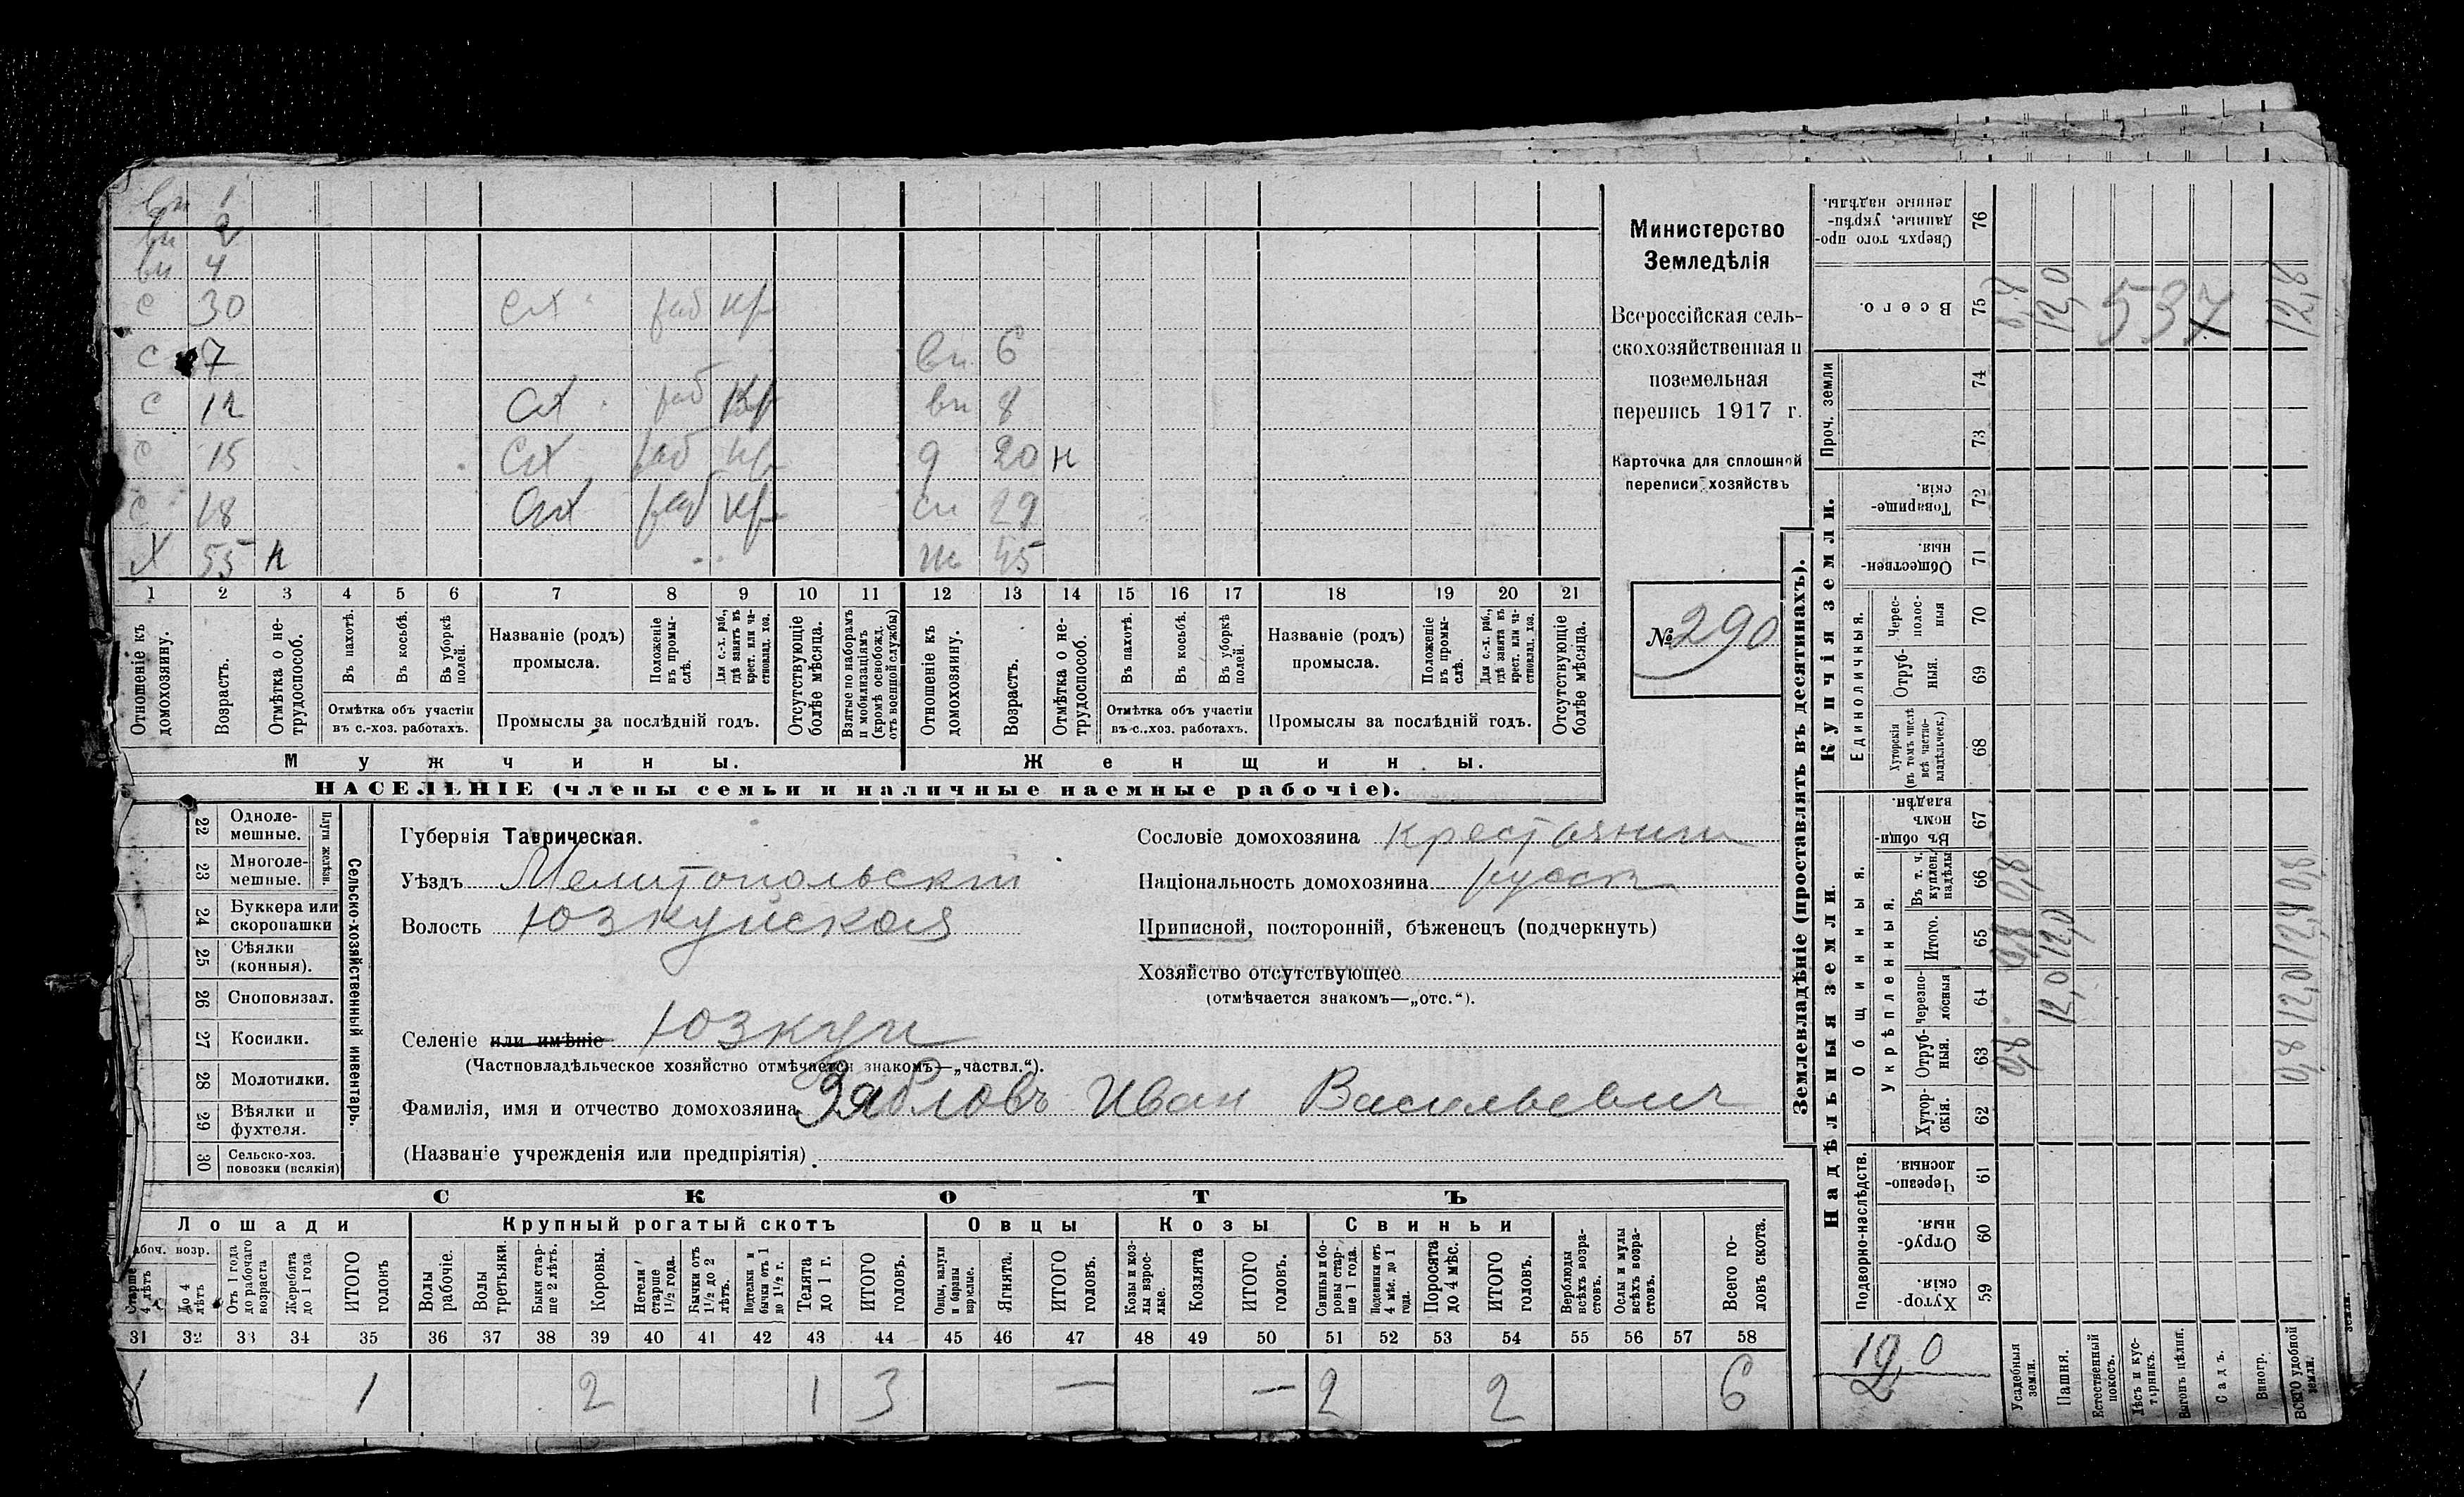 вн 1
вн 2
вн 4
с 30 сх раб кр
с 7 вн 6
с 12 сх раб кр вн 8
с 15 сх раб кр д 20 н
с 18 сх раб кр сн 29
х 55 н ж 45
1 2 3 4 5 6 7 8 9 10 11 12 13 14 15 16 17 18 19 20 21
Отношеніе къ домохозяину.
Возрастъ.
Отмѣтка о не-трудоспособ.
Въ пахотѣ.
Въ косьбѣ.
Въ уборкѣ полей.
Отмѣтка объ участіи
въ с.-хоз. работахъ.
Названіе (родъ)
промысла.
Положеніе въ промы-слѣ.
Для с.-х. раб., гдѣ занятъ въ крест. или ча-стновлад. хоз.
Промыслы за послѣдній годъ.
Отсутствующіе болѣе мѣсяца.
Взятые по наборамъ и мобилизаціямъ (кромѣ освобожд. отъ военной службы)
Отношеніе къ домохозяину.
Возрастъ.
Отмѣтка о не-трудоспособ.
Въ пахотѣ.
Въ косьбѣ.
Въ уборкѣ полей.
Отмѣтка объ участіи
въ с..хоз. работахъ.
Названіе (родъ)
промысла.
Положеніе въ промы-слѣ.
Для с.-х. раб., гдѣ занята въ крест. или ча-стновлад. хоз.
Промыслы за послѣдній годъ.
Отсутствующіе болѣе мѣсяца.
Мужчины. Женщины.
НАСЕЛЕНІЕ (члены семьи и наличные наемные рабочіе).
Министерство
Земледѣлія
Всероссійская сель-
скохозяйственная и
поземельная
перепись 1917 г.
Карточка для сплошной
переписи хозяйствъ
№ 290
22 Одноле-
мешные.
23 Многоле-
мешные.
Плуги желѣзн.
24 Буккера или
скоропашки
25 Сѣялки
(конныя).
26 Сноповязал.
27 Косилки.
28 Молотилки.
29 Вѣялки и
фухтеля.
30 Сельско-хоз.
повозки (всякія)
Сельско-хозяйственный инвентарь.
Губернія Таврическая.
Уѣздъ Мелитопольскій
Волость Юзкуйская
Селеніе или имѣніе Юзкуи
(Частновладѣльческое хозяйство отмѣчается знакомъ—„частвл.“).
Фамилія, имя и отчество домохозяина Зябловъ Иван Васильевич
(Названіе учрежденія или предпріятія)
Сословіе домохозяина крестьянин
Національность домохозяина русск
Приписной, посторонній, бѣженецъ (подчеркнуть)
Хозяйство отсутствующее
(отмѣчается знакомъ—„отс.“).
СКОТЪ
Лошади Крупный рогатый скотъ Овцы Козы Свиньи
абоч. возр.
Старше 4 лѣтъ
До 4 лѣтъ
Отъ 1 года до рабочаго возраста
Жеребята до 1 года
ИТОГО головъ
Волы рабочіе.
Волы третьяки.
Быки стар-ше 2 лѣтъ.
Коровы.
Нетели старше 1½ года.
Бычки отъ 1½ до 2 лѣтъ.
Подтелки и бычки отъ 1 до 1½ г.
Телята до 1 г.
ИТОГО головъ.
Овцы, валухи и бараны взрослые.
Ягнята.
ИТОГО головъ.
Козы и коз-лы взрос-лые.
Козлята
ИТОГО головъ.
Свиньи и бо-ровы стар-ше 1 года.
Подсвинки отъ 4 мѣс. до 1 года.
Поросята до 4 мѣс.
ИТОГО головъ.
Верблюды всѣхъ возра-стовъ.
Ослы и мулы всѣхъ возра-стовъ.
Всего го-ловъ скота.
31 32 33 34 35 36 37 38 39 40 41 42 43 44 45 46 47 48 49 50 51 52 53 54 55 56 57 58
1 1 2 1 3 — — 2 2 6
Землевладѣніе (проставлять въ десятинахъ).
Надѣльныя земли. Купчія земли.
Подворно-наслѣдств.
Общинныя.
Укрѣпленныя.
Единоличныя.
Проч. земли
Хутор-скія. 59
Отруб-ныя. 60
Черезпо-лосныя. 61
Хутор-скія. 62
Отруб-ныя. 63
Черезпо-лосныя 64
Итого. 65
Въ т. ч. куплен. надѣлы 66
Въ общи-номъ владѣн. 67
Хуторскія (въ томъ числѣ всѣ частно-владѣльческ.) 68
Отруб-ныя. 69
Черес-полос-ныя 70
Обществен-ныя. 71
Товарище-скія. 72
73
74
Всего. 75
Сверхъ того про-данные, укрѣп-ленные надѣлы. 76
Усадебныя земли. 0,8 0,8 0,8
Пашня. 12,0 12,0 12,0
Естественный покосъ.
Лѣсъ и кус-тарникъ.
Выгонъ цѣлин.
Садъ.
Виногр.
Всего удобной земли. 0,8 12,0 12,8 0,8 12,8
537